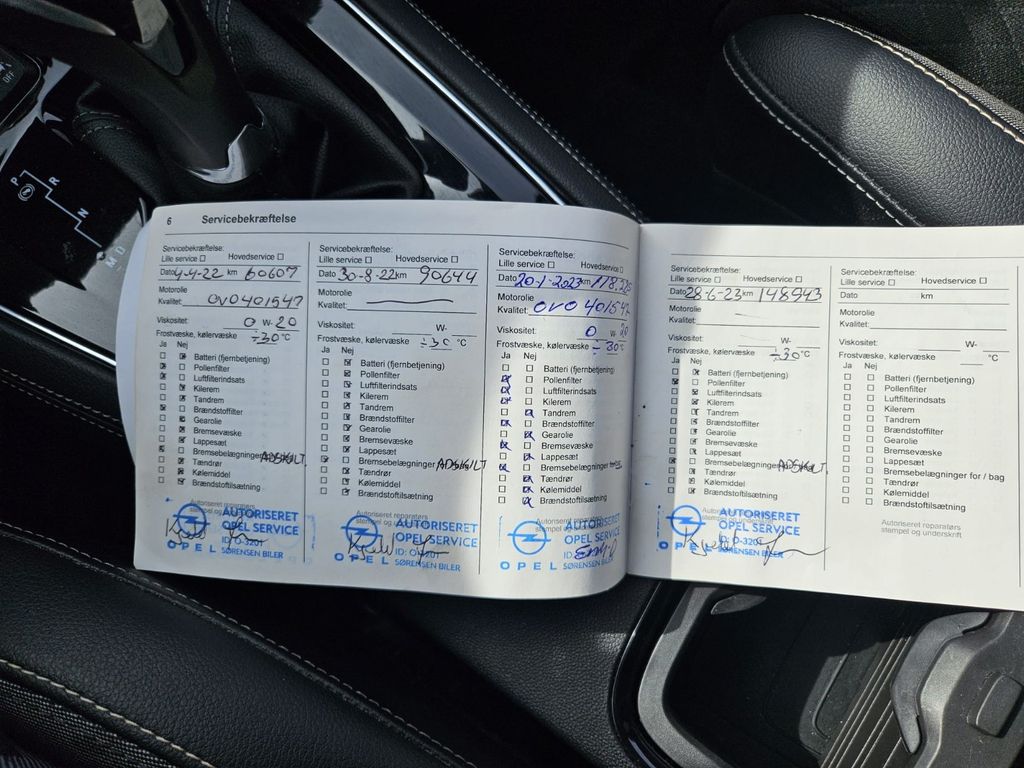 OFF
P R
N
M D
6 Servicebekræftelse
Servicebekræftelse:
Lille service ☐ Hovedservice ☐
Dato 4-4-22 km 60607
Motorolie
Kvalitet: OVO401547
Viskositet: 0 W- 20
Frostvæske, kølervæske ÷30 °C
Ja Nej
Batteri (fjernbetjening)
Pollenfilter
Luftfilterindsats
Kilerem
Tandrem
Brændstoffilter
Gearolie
Bremsevæske
Lappesæt
Bremsebelægninger ADSKILT
Tændrør
Kølemiddel
Brændstoftilsætning
Autoriseret reparatørs
AUTORISERET
OPEL SERVICE
ID: O-3201
OPEL SØRENSEN BILER
Servicebekræftelse:
Lille service ☐ Hovedservice ☐
Dato 30-8-22 km 90644
Motorolie
Kvalitet:
Viskositet: W-
Frostvæske, kølervæske ÷30 °C
Ja Nej
Batteri (fjernbetjening)
Pollenfilter
Luftfilterindsats
Kilerem
Tandrem
Brændstoffilter
Gearolie
Bremsevæske
Lappesæt
Bremsebelægninger ADSKILT
Tændrør
Kølemiddel
Brændstoftilsætning
Autoriseret reparatørs
AUTORISERET
OPEL SERVICE
OPEL SØRENSEN BILER
Servicebekræftelse:
Lille service ☐ Hovedservice ☐
Dato 20-1-2023 km 118325
Motorolie
Kvalitet: OVO 401547
Viskositet: 0 W- 20
Frostvæske, kølervæske ÷30 °C
Ja Nej
Batteri (fjernbetjening)
Pollenfilter
Luftfilterindsats
Kilerem
Tandrem
Brændstoffilter
Gearolie
Bremsevæske
Lappesæt
Bremsebelægninger for
Tændrør
Kølemiddel
Brændstoftilsætning
Autoriseret reparatørs
stempel og underskrift
AUTORISERET
OPEL SERVICE
OPEL SØRENSEN BILER
Servicebekræftelse:
Lille service ☐ Hovedservice ☐
Dato 28-6-23 km 148943
Motorolie
Kvalitet:
Viskositet: W-
Frostvæske, kølervæske ÷30 °C
Ja Nej
Batteri (fjernbetjening)
Pollenfilter
Luftfilterindsats
Kilerem
Tandrem
Brændstoffilter
Gearolie
Bremsevæske
Lappesæt
Bremsebelægninger ADSKILT
Tændrør
Kølemiddel
Brændstoftilsætning
AUTORISERET
OPEL SERVICE
ID: O-3201
OPEL SØRENSEN BILER
Servicebekræftelse:
Lille service ☐ Hovedservice ☐
Dato km
Motorolie
Kvalitet:
Viskositet: W-
Frostvæske, kølervæske °C
Ja Nej
Batteri (fjernbetjening)
Pollenfilter
Luftfilterindsats
Kilerem
Tandrem
Brændstoffilter
Gearolie
Bremsevæske
Lappesæt
Bremsebelægninger for / bag
Tændrør
Kølemiddel
Brændstoftilsætning
Autoriseret reparatørs
stempel og underskrift